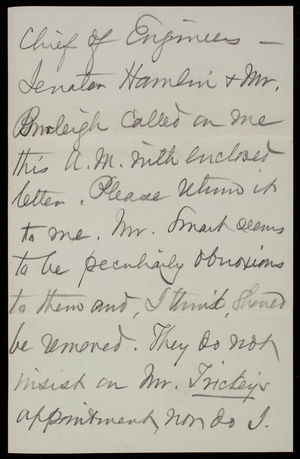 Chief of Engineers —
Senator Hamlin & Mr.
Burleigh called on me
this A.M. with enclosed
letter. Please return it
to me. Mr. Smart seems
to be peculiarly obnoxious
to them and, I think, should
be removed. They do not
insist on Mr. Trickey's
appointment, nor do I.